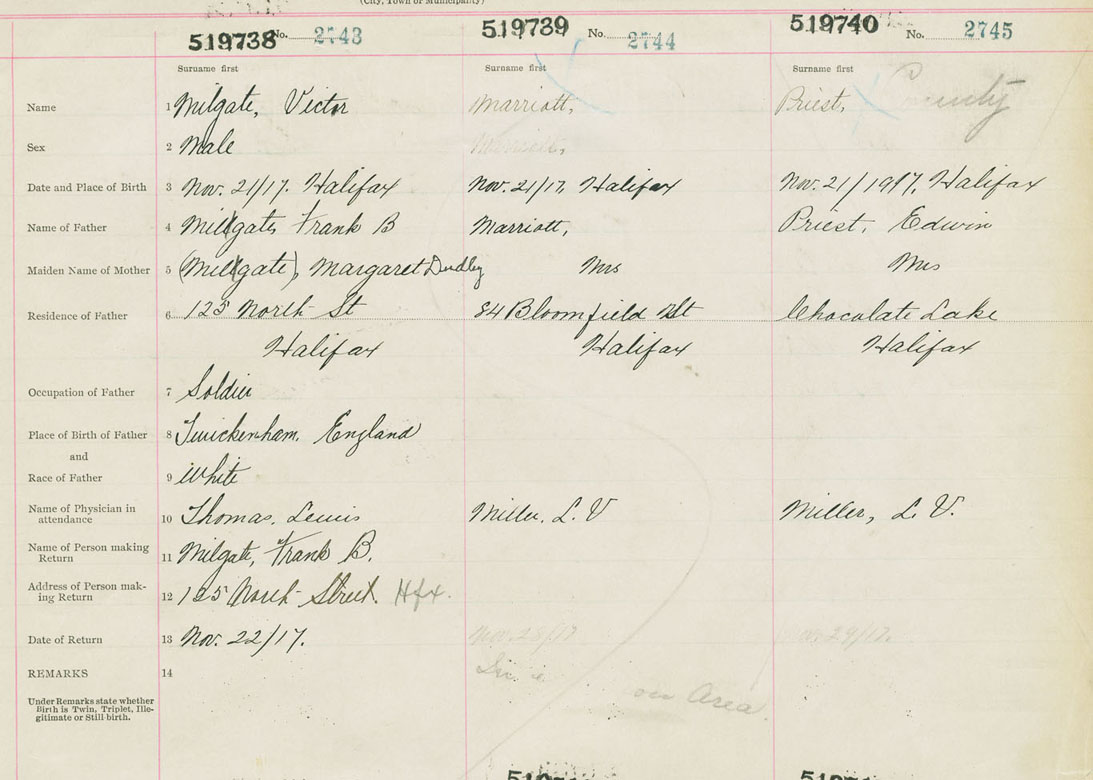 (City, Town or Municipality)
519738 No. 2743 519739 No. 2744 519740 No. 2745
Surname first Surname first Surname first
Name 1 Milgate, Victor Marriott, Priest, County
Sex 2 Male
Date and Place of Birth 3 Nov. 21/17. Halifax Nov. 21/17, Halifax Nov. 21/1917, Halifax
Name of Father 4 Millgate, Frank B Marriott, Priest, Edwin
Maiden Name of Mother 5 (Millgate), Margaret Dudley Mrs Mrs
Residence of Father 6 125 North St 84 Bloomfield St Chocolate Lake
Halifax Halifax Halifax
Occupation of Father 7 Soldier
Place of Birth of Father 8 Twickenham, England
and
Race of Father 9 White
Name of Physician in
attendance 10 Thomas, Lewis Miller, L. V Miller, L. V.
Name of Person making
Return 11 Milgate, Frank B.
Address of Person mak-
ing Return 12 125 North Street. Hfx.
Date of Return 13 Nov. 22/17. Nov. 28/17 29/17.
REMARKS 14
on Area
Under Remarks state whether
Birth is Twin, Triplet, Ille-
gitimate or Still birth.